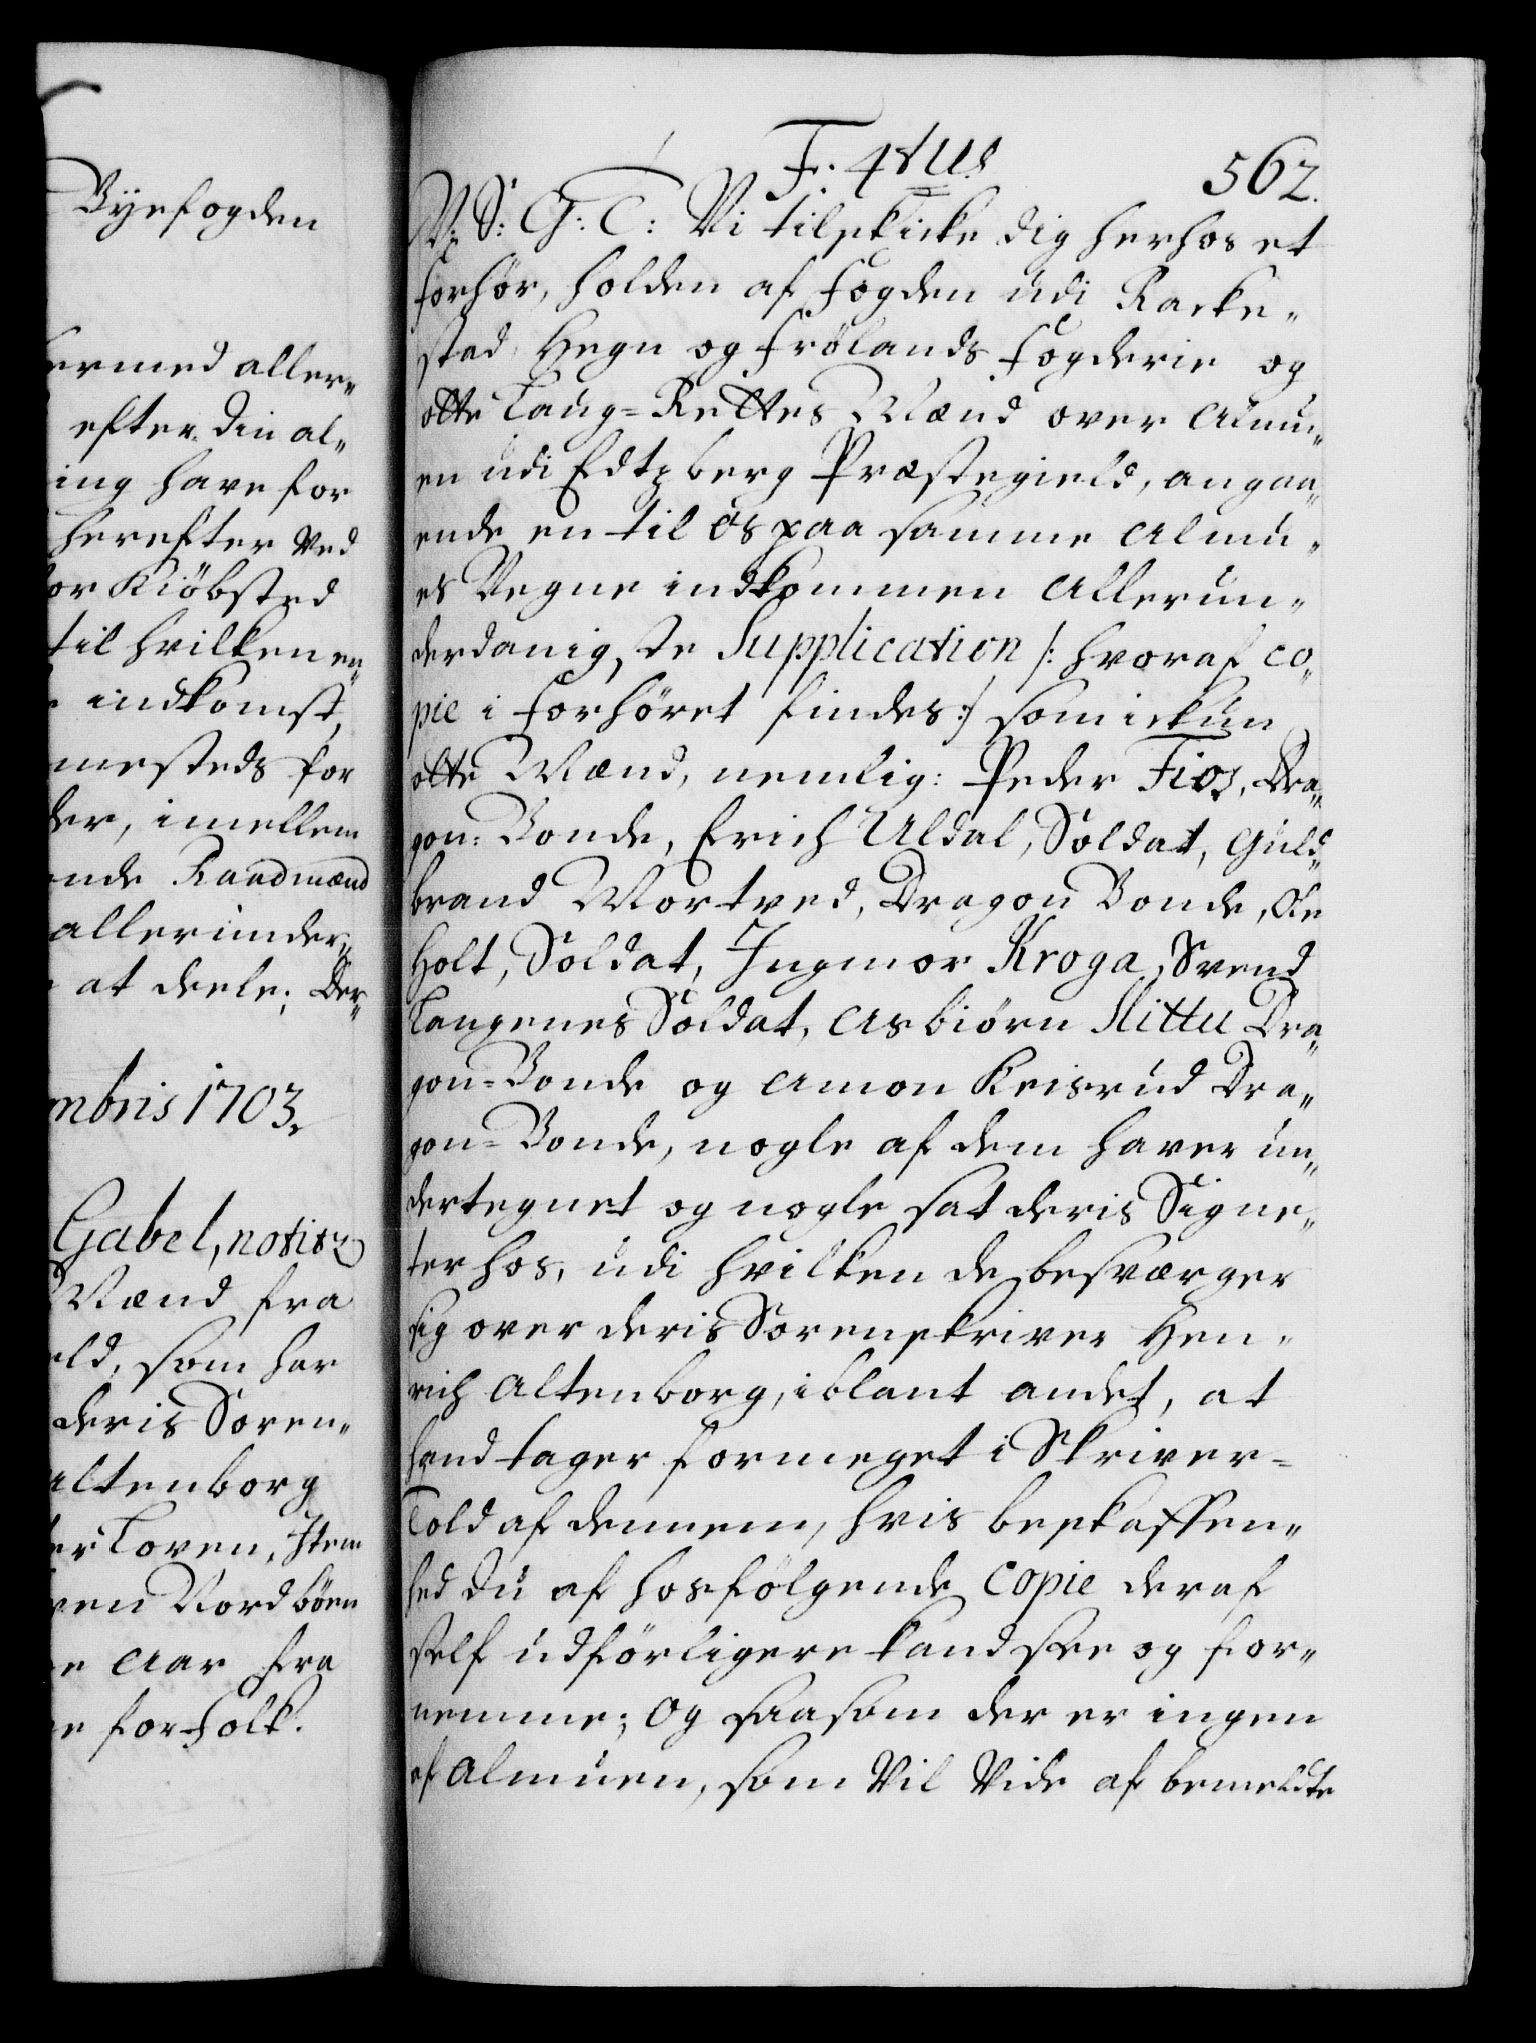 Byefogden
ermed aller„
efter din al„
ing have for
herefter ved
or Kiöbsted
til hvilken en„
indkomst,
mesteds for
der, imellem
nde Raadmænd
allerunder„
at deele; Der„
mbris 1703.
Gabel, notits
Mænd fra
eld, som har
deris Soren„
Altenborg
er Loven, Item
ven Nordböen
e Aar fra
e forholt.
F. 4tus 562.
V: S: G: T: Vi tilskicke dig herhos et
forhör, holden af fogden udi Racke„
stad, Hegn og Frölands fogderie og
otte Laug=Rettes Mænd over Almu„
en udi Edtzberg Præstegield, angaa„
ende en til os paa samme Almu„
es Vegne indkommen Allerun„
derdanigste Supplication /: hvoraf co„
pie i forhöret findes :/ som ickun
otte Mænd, nemlig: Peder Fios, Dra„
gon=Bonde, Erich Uldal, Soldat, Guld„
brand Mortved, Dragon Bonde, Ole
Holt, Soldat, Ingmor Kroga, Svend
Langenes Soldat, Asbiörn Slittu Dra„
gon=Bonde og Amon Krisrud Dra„
gon=Bonde, nogle af dem haver un„
dertegnet og nogle sat deris Signe„
ter hos, udi hvilken de besværger
sig over deris Sorenskriver Hen„
rich Altenborg, iblant andet, at
hand tager formeget i Skriver=
Told af dennem, hvis beskaffen„
hed du af hosfölgende Copie deraf
self udförligere kand see og for„
nemme; Og saasom der er ingen
af Almuen, som vil vide af bemeldte